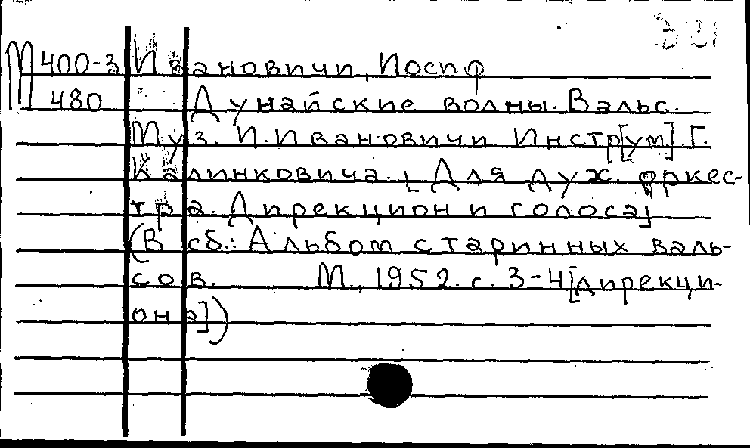 М 400-3 Ивановичи, Иосиф
480 Дунайские волны. Вальс.
Муз. И. Ивановичи Инстр[ум] Г.
Калинковича. [Для дух. оркес-
тра. Дирекцион и голоса]
(В сб.: Альбом старинных валь-
сов. М., 1952. с. 3-4[дирекци-
она])